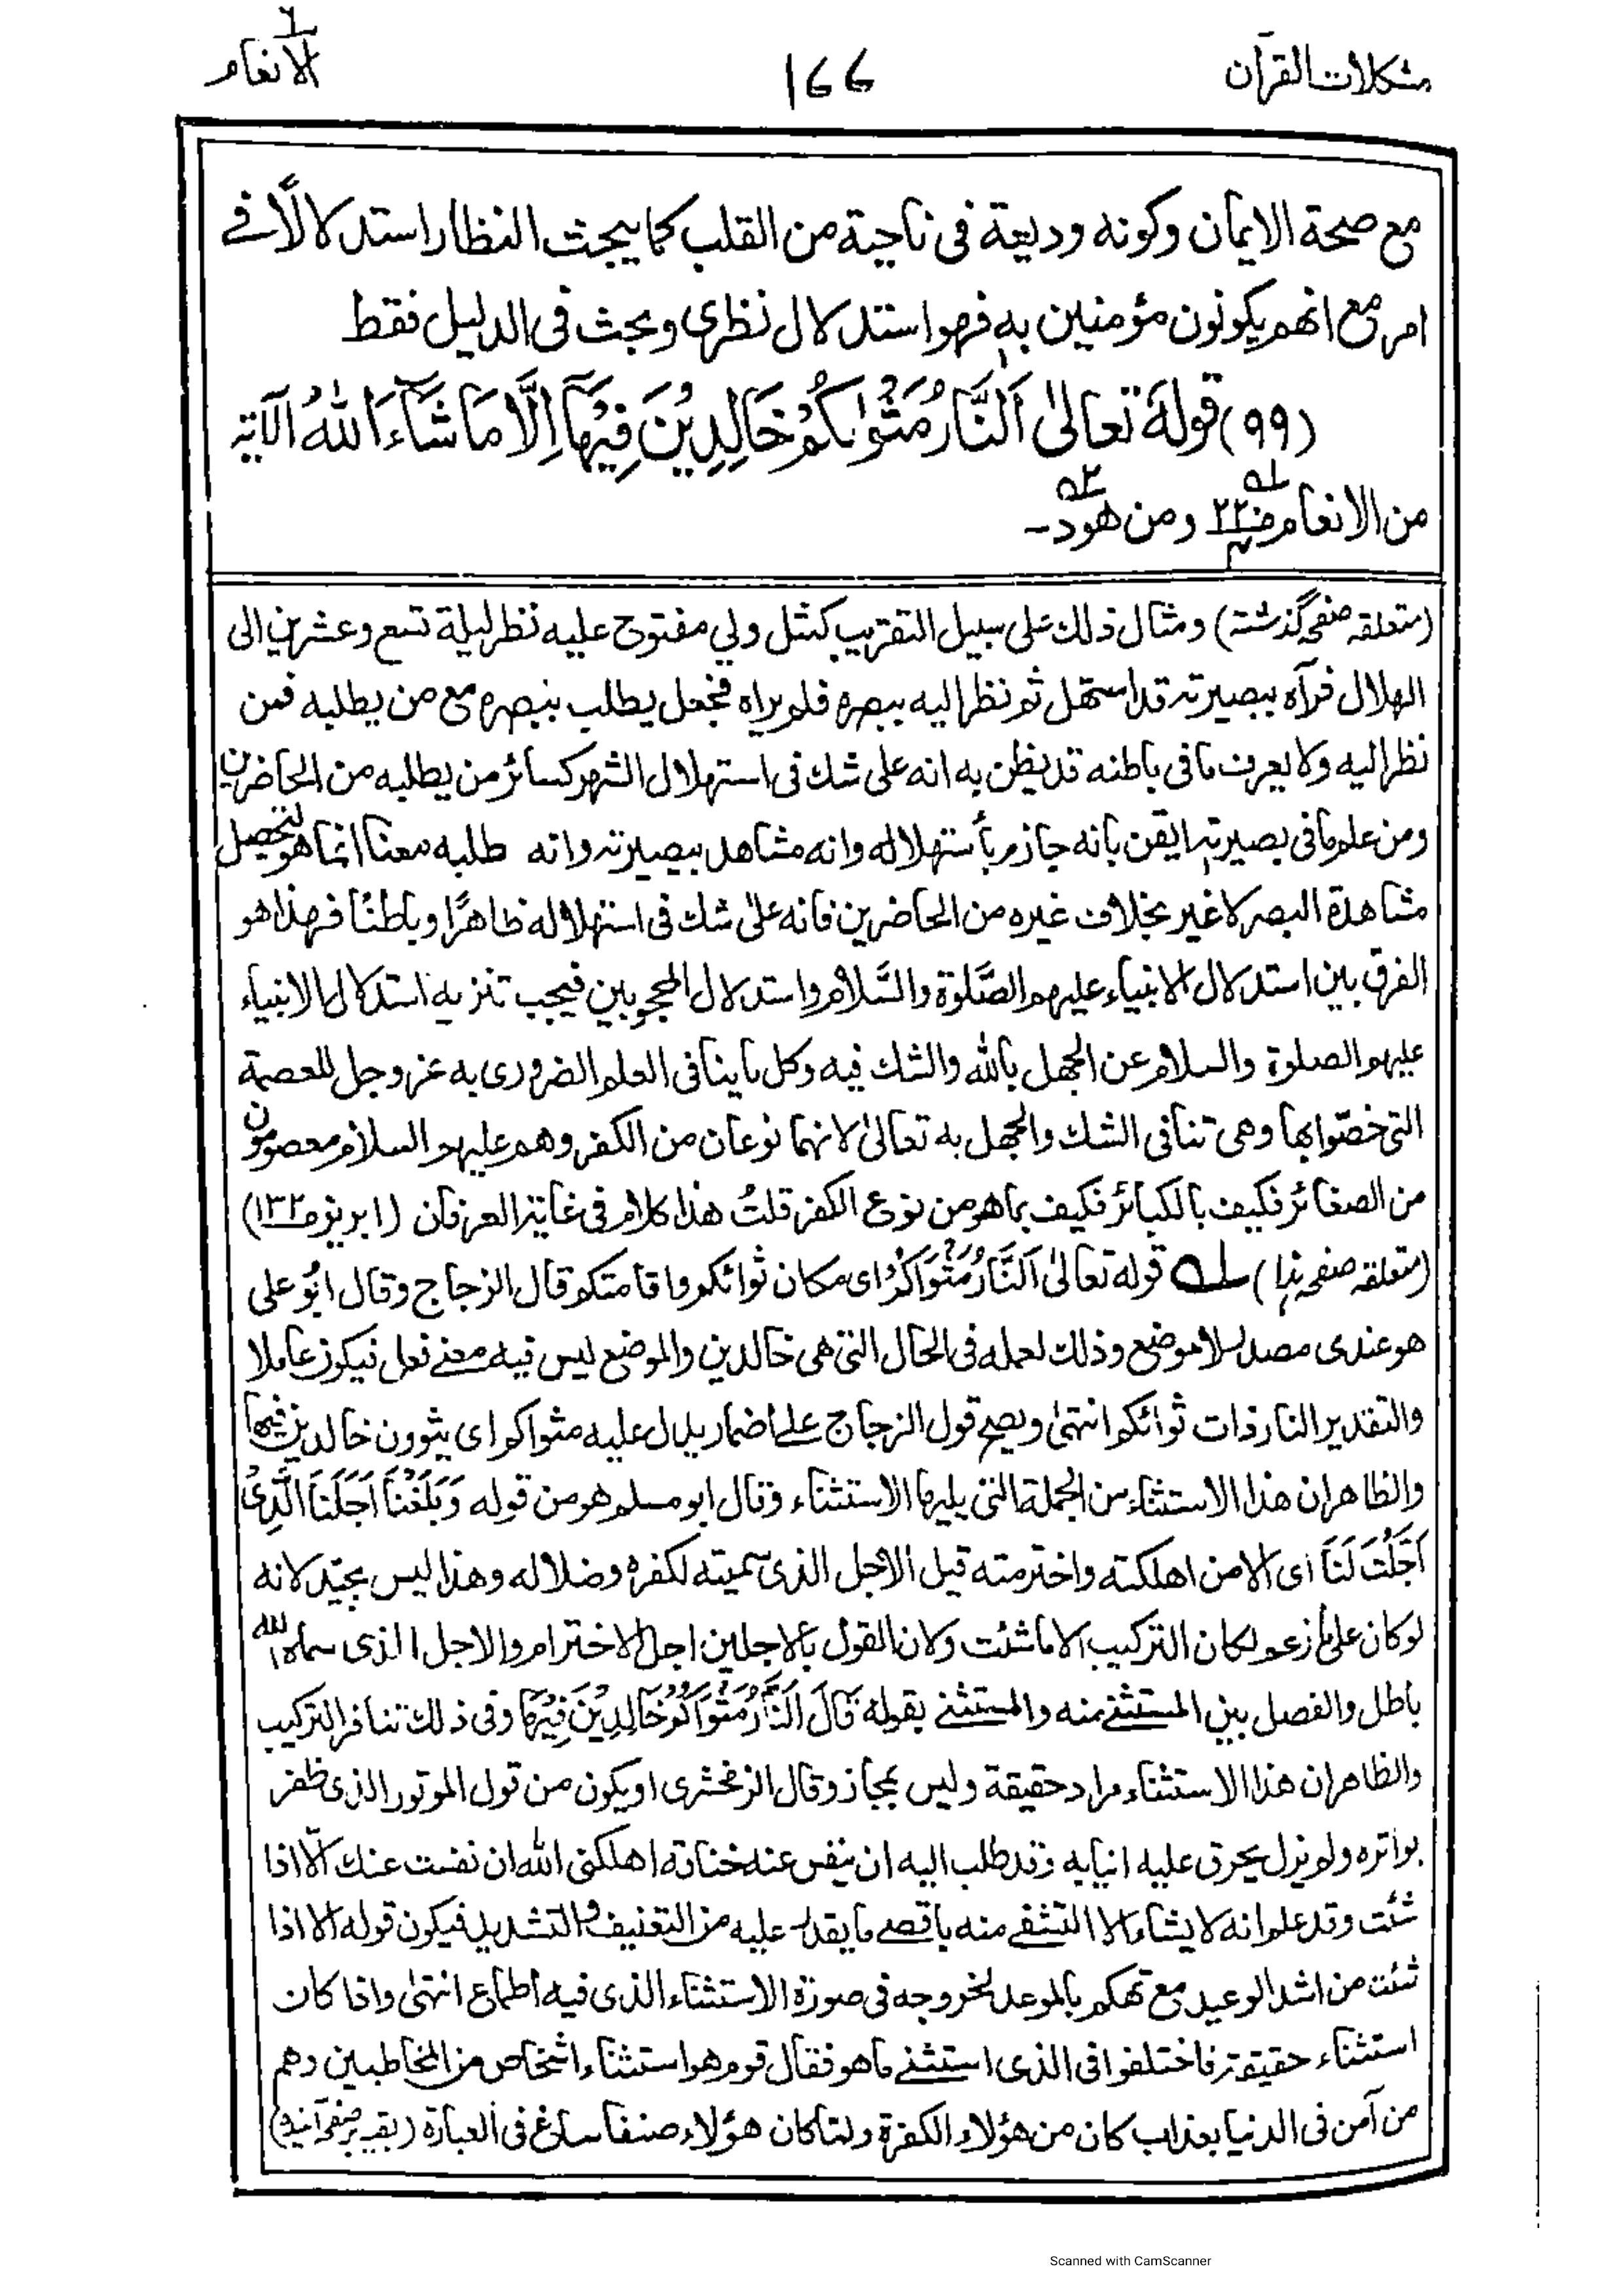 مشكلات القرآن
١٦٦
الانعام
٦
مع صحة الايمان وكونه وديعة فى ناحية من القلب كما يبحث النظار استدلالاً فے
امر مع انهم يكونون مؤمنين به فهو استدلال نظرى وبحث فى الدليل فقط
(٩٩) قوله تعالىٰ اَلنَّارُ مَثْوٰىكُمْ خَالِدِيْنَ فِيْهَآ اِلَّا مَا شَآءَ اللهُ الآية
من الانعام ومن هود ـ
(متعلقہ صفحہ گذشتہ) ومثال ذلك على سبيل التقريب كمثل ولي مفتوح عليه نظر ليلة تسع وعشرين الى
الهلال فرآه ببصيرته قد استهل ثم نظر اليه ببصره فلم يراه فجعل يطلب ببصره مع من يطلبه فمن
نظر اليه ولا يعرف ما فى باطنه قد يظن به انه على شك فى استهلال الشهر كسائر من يطلبه من الحاضرين
ومن علم ما فى بصيرته ايقن بانه جازم بأستهلاله وانه مشاهد ببصيرته وانه طلبه معنا انما هو لتحصيل
مشاهدة البصر لا غير بخلاف غيره من الحاضرين فانه على شك فى استهلاله ظاهرًا وباطنًا فهذا هو
الفرق بين استدلال الانبياء عليهم الصَّلوٰة والسَّلام واستدلال المحجوبين فيجب تنزيه استدلال الانبياء
عليهم الصلوة والسلام عن الجهل بالله والشك فيه وكل ما ينافى العلم الضرورى به عز وجل للعصمة
التى خصّوا بها وهى تنافى الشك والجهل به تعالىٰ لانهما نوعان من الكفر وهم عليهم السلام معصومون
من الصغائر فكيف بالكبائر فكيف بما هو من نوع الكفر قلتُ هذا كلام فى غاية العرفان (ابريز ص١٣٢)
(متعلقہ صفحہ ہذا) لہ قوله تعالىٰ اَلنَّارُ مَثْوَاكُمْ اى مكان ثوائكم واقامتكم قال الزجاج وقال ابو على
هو عندى مصدر لا موضع وذلك لعمله فى الحال التى هى خالدين والموضع ليس فيه معنے فعل فيكون عاملا
والتقدير النار ذات ثوائكم انتهىٰ ويصح قول الزجاج علے اضمار يدل عليه مثواكم اى يثوون خالدين فيها
والظاهر ان هذا الاستثناء من الجملة التى يليها الاستثناء وقال ابو مسلم هو من قوله وَبَلَغْنَا اَجَلَنَا الَّذِىْ
اَجَّلْتَ لَنَا اى الا من اهلكته واخترمته قبل الاجل الذى سميته لكفره وضلاله وهذا ليس بجيّد لانه
لو كان على ما زعم لكان التركيب الا ما شئت ولان القول بالاجلين اجل الاخترام والاجل الذى سماه الله
باطل والفصل بين المستثنے منه والمستثنے بقوله قَالَ اَلنَّارُ مَثْوَاكُمْ خَالِدِيْنَ فِيْهَا وفى ذلك تنافر التركيب
والظاهر ان هذا الاستثناء مراد حقيقة وليس بمجاز وقال الزمخشرى او يكون من قول الموتور الذى ظفر
بواتره ولم يزل يحرق عليه انيابه وقد طلب اليه ان ينفس عنه خناقه اهلكنى الله ان نفست عنك الّا اذا
شئت وقد علم انه لا يشاء الا التشفے منه باقصے ما يقدر عليه من التعنيف والتشديد فيكون قوله الا اذا
شئت من اشد الوعيد مع تهكم بالموعد لخروجه فى صورة الاستثناء الذى فيه اطماع انتهىٰ واذا كان
استثناء حقيقة فاختلفوا فى الذى استثنے ما هو فقال قوم هو استثناء اشخاص من المخاطبين وهم
من آمن فى الدنيا بعذاب كان من هؤلاء الكفرة ولما كان هؤلاء صنفا ساغ فى العبارة (بقیہ بر صفحہ آئندہ)
Scanned with CamScanner